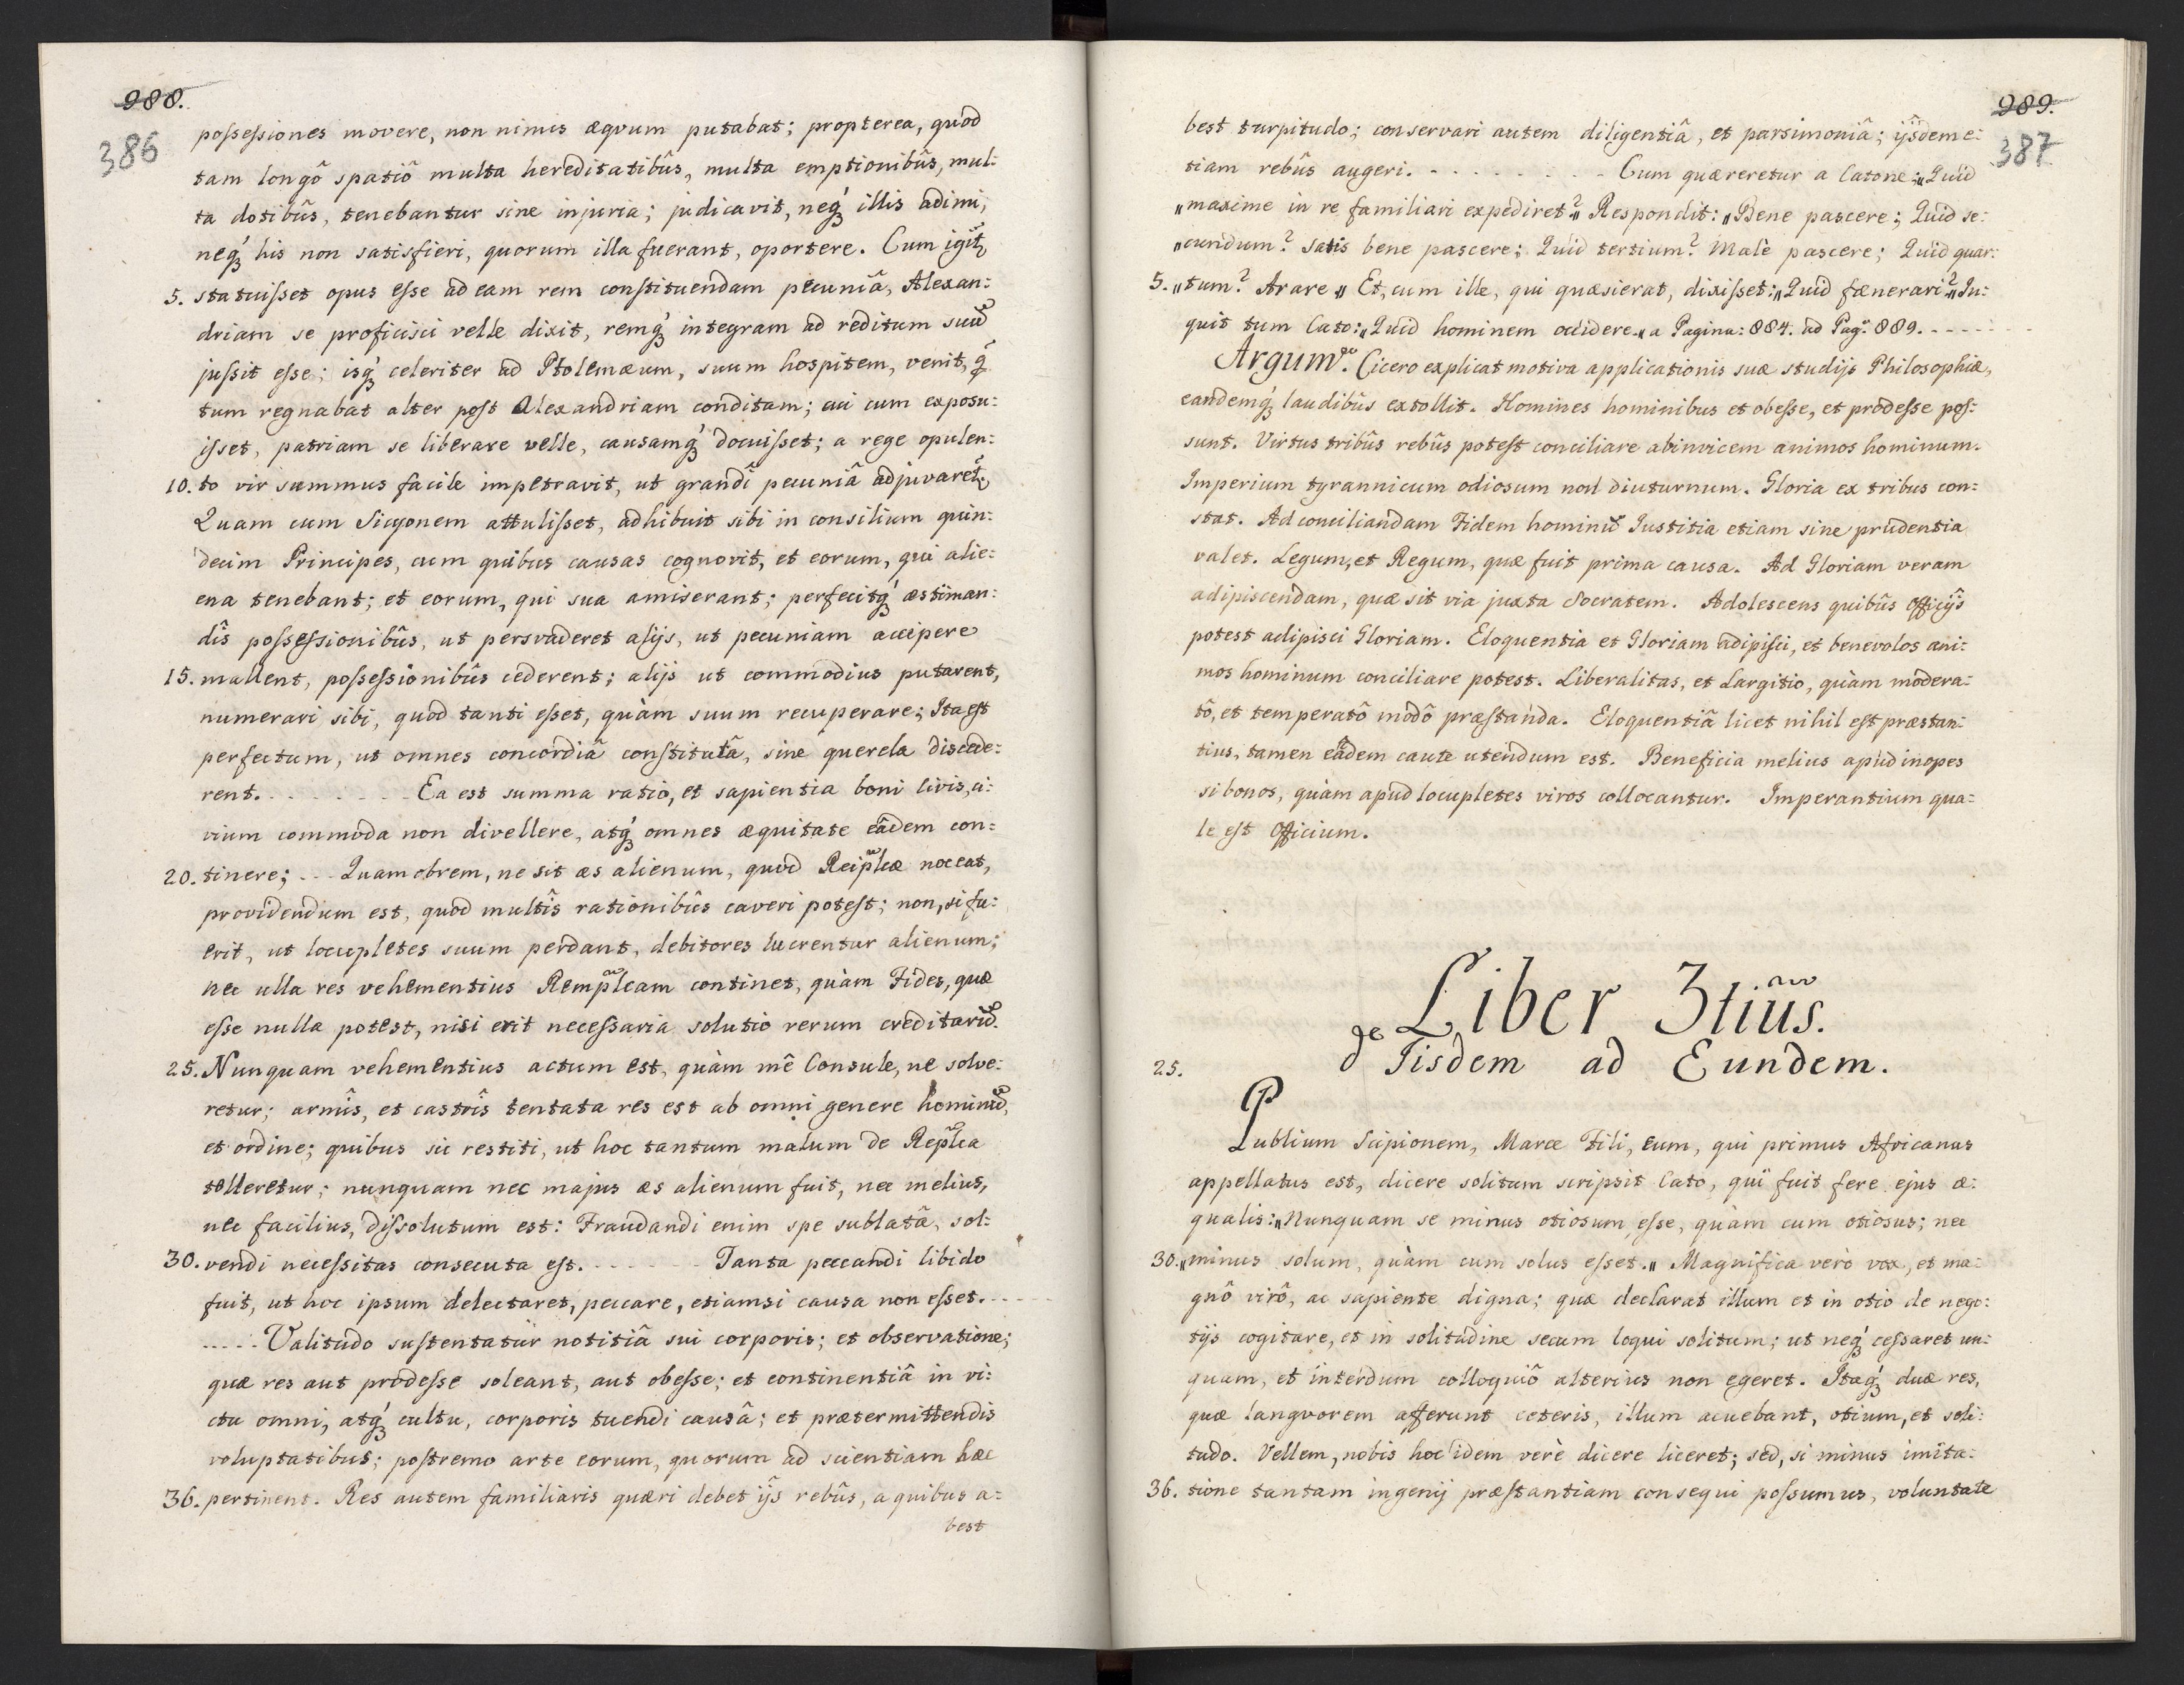 988.
386
possessiones movere, non nimis æqvum putabat; propterea, quòd
tam longô spatiô multa hereditatibûs, multa emptionibûs, mul:
ta dotibûs, tenebantur sine injuria; judicavit, neq́ꝫ illis adimi,
neq́ꝫ his non satisfieri, quorum illa fuerant, oportere. Cum igit̃
5. statuisset opus esse ad eam rem constituendam pecuniâ, Alexan:
driam se proficisci velle dixit, remq́ꝫ integram ad reditum suũ
jussit esse; isq́ꝫ celeriter ad Ptolemæum, suum hospitem, venit, q̃
tum regnabat alter post Alexandriam conditam; cui cum exposu:
isset, patriam se liberare velle, causamq́ꝫ docuisset; a rege opulen:
10. to vir summus facile impetravit, ut grandî pecuniâ adjuvaret̃.
Quam cum Sicyonem attulisset, adhibuit sibi in consilium quin:
decim Principes, cum quibus causas cognovit, et eorum, qui alie:
ena tenebant; et eorum, qui sua amiserant; perfecitq́ꝫ æstiman:
dîs possessionibûs, ut persvaderet alijs, ut pecuniam accipere
15. mallent, possessionibûs cederent; alijs ut commodius putarent,
numerari sibi, quod tanti esset, quàm suum recuperare; Ita est
perfectum, ut omnes concordiâ constitutâ, sine querela discede:
rent. . . . . . . . Ea est summa ratio, et sapientia boni Civis, ci:
vium commoda non divellere, atq́ꝫ omnes æquitate eâdem con:
20. tinere; . . . Quamobrem, ne sit æs alienum, quod Reip̃lcæ noceat,
providendum est, quod multîs rationibûs caveri potest; non, si fu:
erit, ut locupletes suum perdant, debitores lucrentur alienum;
nec ulla res vehementius Remp̃lcam continet, quàm Fides, quæ
esse nulla potest, nisi erit necessaria solutio rerum creditarũ.
25. Nunquam vehementius actum est, quàm mê Consule, ne solve:
retur; armîs, et castrîs tentata res est ab omni genere hominũ,
et ordine; quibus sic restiti, ut hoc tantum malum de Rep̃lca
tolleretur; nunquam nec majus æs alienum fuit, nec melius,
nec facilius, dissolutum est: Fraudandi enim spe sublatâ, sol:
30. vendi necessitas consecuta est. . . . . . . Tanta peccandi libido
fuit, ut hoc ipsum delectaret, peccare, etiamsi causa non esset. . . .
. . . . . Valitudo sustentatur notitiâ sui corporis; et observatione;
quæ res aut prodesse soleant, aut obesse; et continentiâ in vi:
ctu omni, atq́ꝫ cultu, corporis tuendi causâ; et prætermittendis
voluptatibus; postremo arte eorum, quorum ad scientiam hæc
36. pertinent. Res autem familiaris quæri debet ijs rebûs, a quibus a:
best
989.
387
best turpitudo; conservari autem diligentiâ, et parsimoniâ; ijsdem e:
tiam rebûs augeri. . . . . . . . . . Cum quæreretur a Catone: „Quid
„maxime in re familiari expediret?„ Respondit: „Bene pascere; Quid se:
„cundum? satis bene pascere; Quid tertium? Malè pascere; Quid quar:
5. „tum? Arare„ Et, cum ille, qui quæsierat, dixisset: „Quid fænerari?„ In:
quit tum Cato: „Quid hominem occidere.„ a Pagina: 884. ad Pag: 889. . . . . . .
Argumᵐ. Cicero explicat motiva applicationis suæ studijs Philosophiæ,
eandemq́ꝫ laudibûs extollit. Homines hominibus et obesse, et prodesse pos:
sunt. Virtus tribûs rebûs potest conciliare abinvicem animos hominum.
Imperium tyrannicum odiosum non diuturnum. Gloria ex tribus con:
stat. Ad conciliandam Fidem hominũ Justitia etiam sine prudentia
valet. Legum, et Regum, quæ fuit prima causa. Ad Gloriam veram
adipiscendam, quæ sit via juxta Socratem. Adolescens quibûs Officijs
potest adipisci Gloriam. Eloquentia et Gloriam adipisci, et benevolos ani:
mos hominum conciliare potest. Liberalitas, et Largitio, quàm modera:
tô, et temperatô modô præstanda. Eloquentiâ licet nihil est præstan:
tius, tamen eâdem caute utendum est. Beneficia melius apud inopes
si bonos, quàm apud locupletes viros collocantur. Imperantium qua:
le est Officium.
Liber 3tius.
25. de Iisdem ad Eundem.
Publium Scipionem, Marce Fili, eum, qui primus Africanus
appellatus est, dicere solitum scripsit Cato, qui fuit fere ejus æ:
qualis: „Nunquam se minus otiosum, esse, quàm cum otiosus; nec
30. „minus solum, quàm cum solus esset.„ Magnifica verò vox, et ma:
gnô virô, ac sapiente digna; quæ declarat illum et in otio de nego:
tijs cogitare, et in solitudine secum loqui solitum; ut neq́ꝫ cessaret un:
quam, et interdum colloquiô alterius non egeret. Itaq́ꝫ duæ res,
quæ langvorem afferunt ceteris, illum acuebant, otium, et soli:
tudo. Vellem, nobis hoc idem verè dicere liceret; sed, si minus imita:
36. tione tantam ingenij præstantiam consequi possumus, voluntate